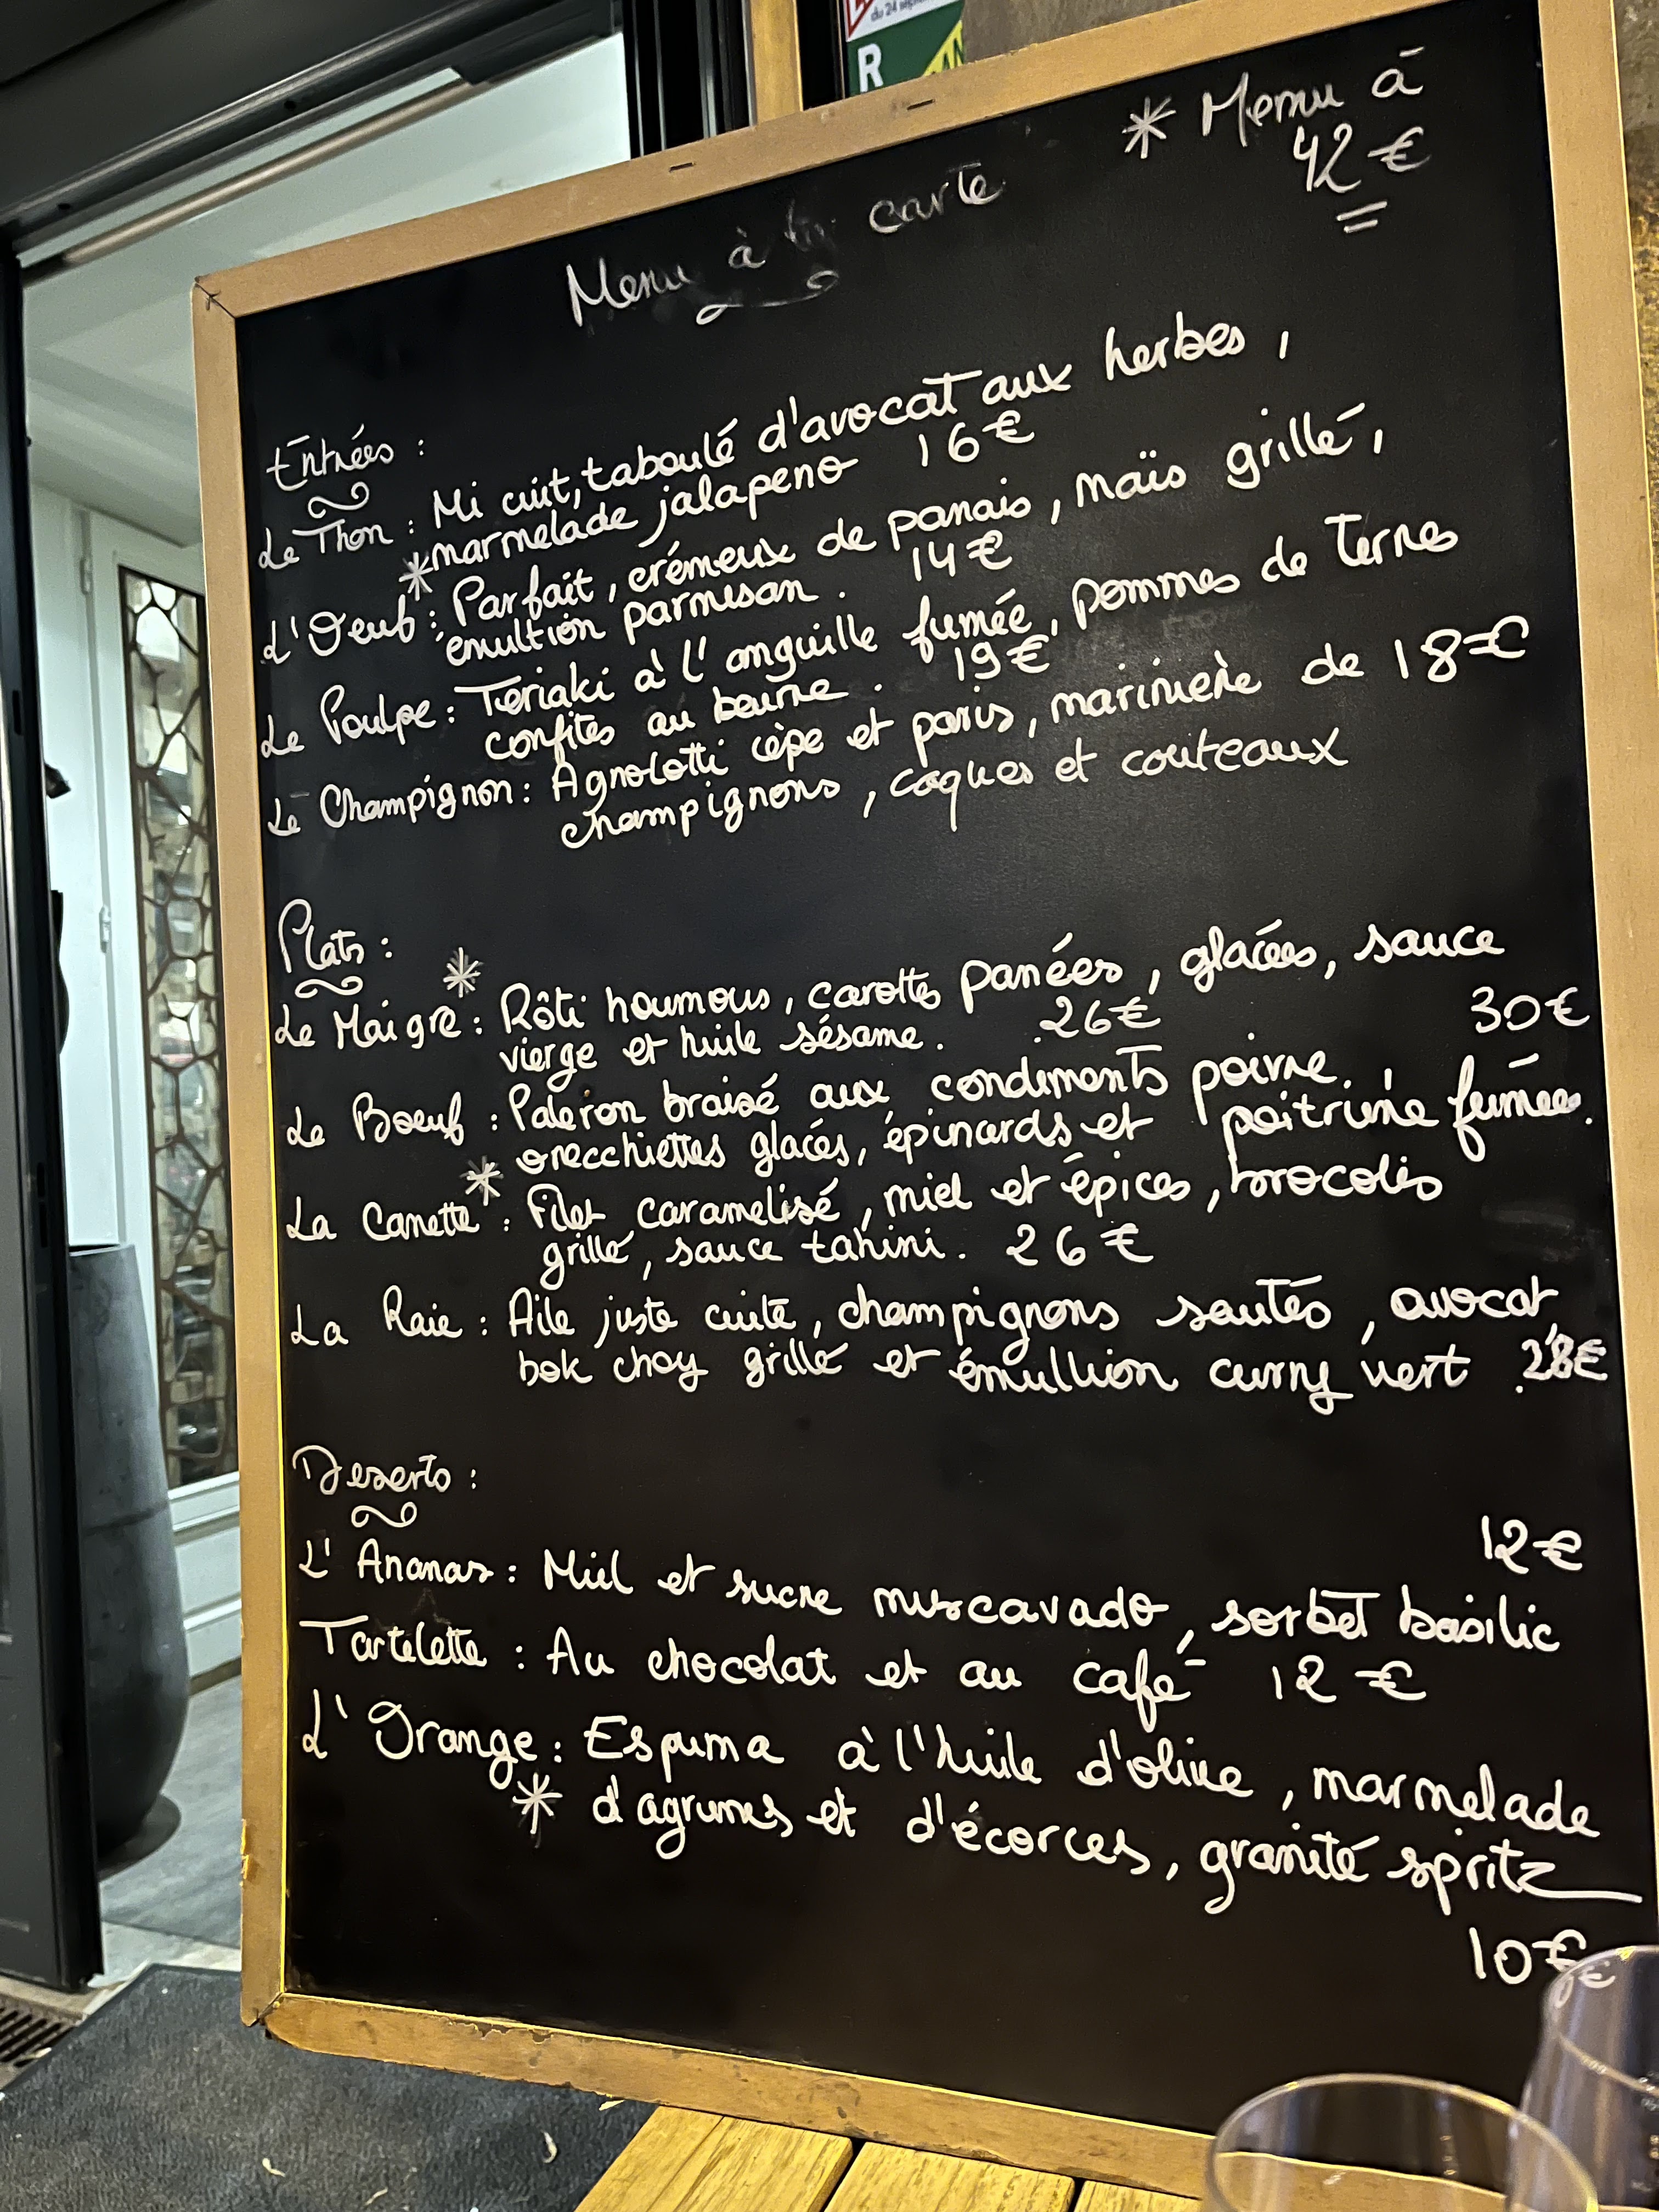 du 24 sept
R
* Menu à
42 €
Menu à la carte
Entrées :
Le Thon : Mi cuit, taboulé d'avocat aux herbes,
marmelade jalapeno 16€
*
L'Oeuf : Parfait, crémeux de panais, maïs grillé,
émultion parmesan. 14€
Le Poulpe : Teriaki à l'anguille fumée, pommes de terres
confites au beurre. 19€
Le Champignon : Agnolotti cèpe et paris, marinière de 18€
champignons, coques et couteaux
Plats :
*
Le Maigre : Rôti houmous, carottes panées, glacées, sauce
vierge et huile sésame. 26€
30€
Le Boeuf : Paleron braisé aux condiments poivre.
orecchiettes glacés, épinards et poitrine fumées.
*
La Canette : Filet caramelisé, miel et épices, brocolis
grillé, sauce tahini. 26€
La Raie : Aile juste cuite, champignons sautés, avocat,
bok choy grillé et émullion curry vert 28€
Deserts :
12€
L'Ananas : Miel et sucre muscavado, sorbet basilic
Tartelette : Au chocolat et au café 12€
L'Orange : Espuma à l'huile d'olive, marmelade
* d'agrumes et d'écorces, granité spritz
10€